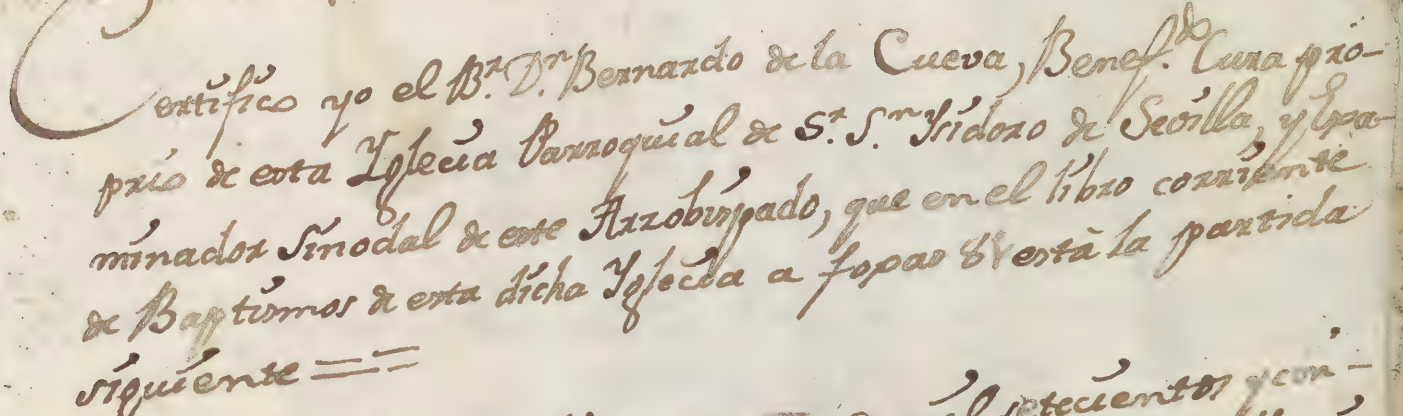 Certifico yo el B.r D.n Bernardo de la Cueva, Benef.do Cura pro-
prio de esta Yglecia Parroquial de S.r S.n Ysidoro de Sevilla, y Exa-
minador Sinodal de este Arzobispado, que en el libro corriente
de Baptismos de esta dicha Yglecia a foxas está la partida
siguiente ==
setecientos y cin-